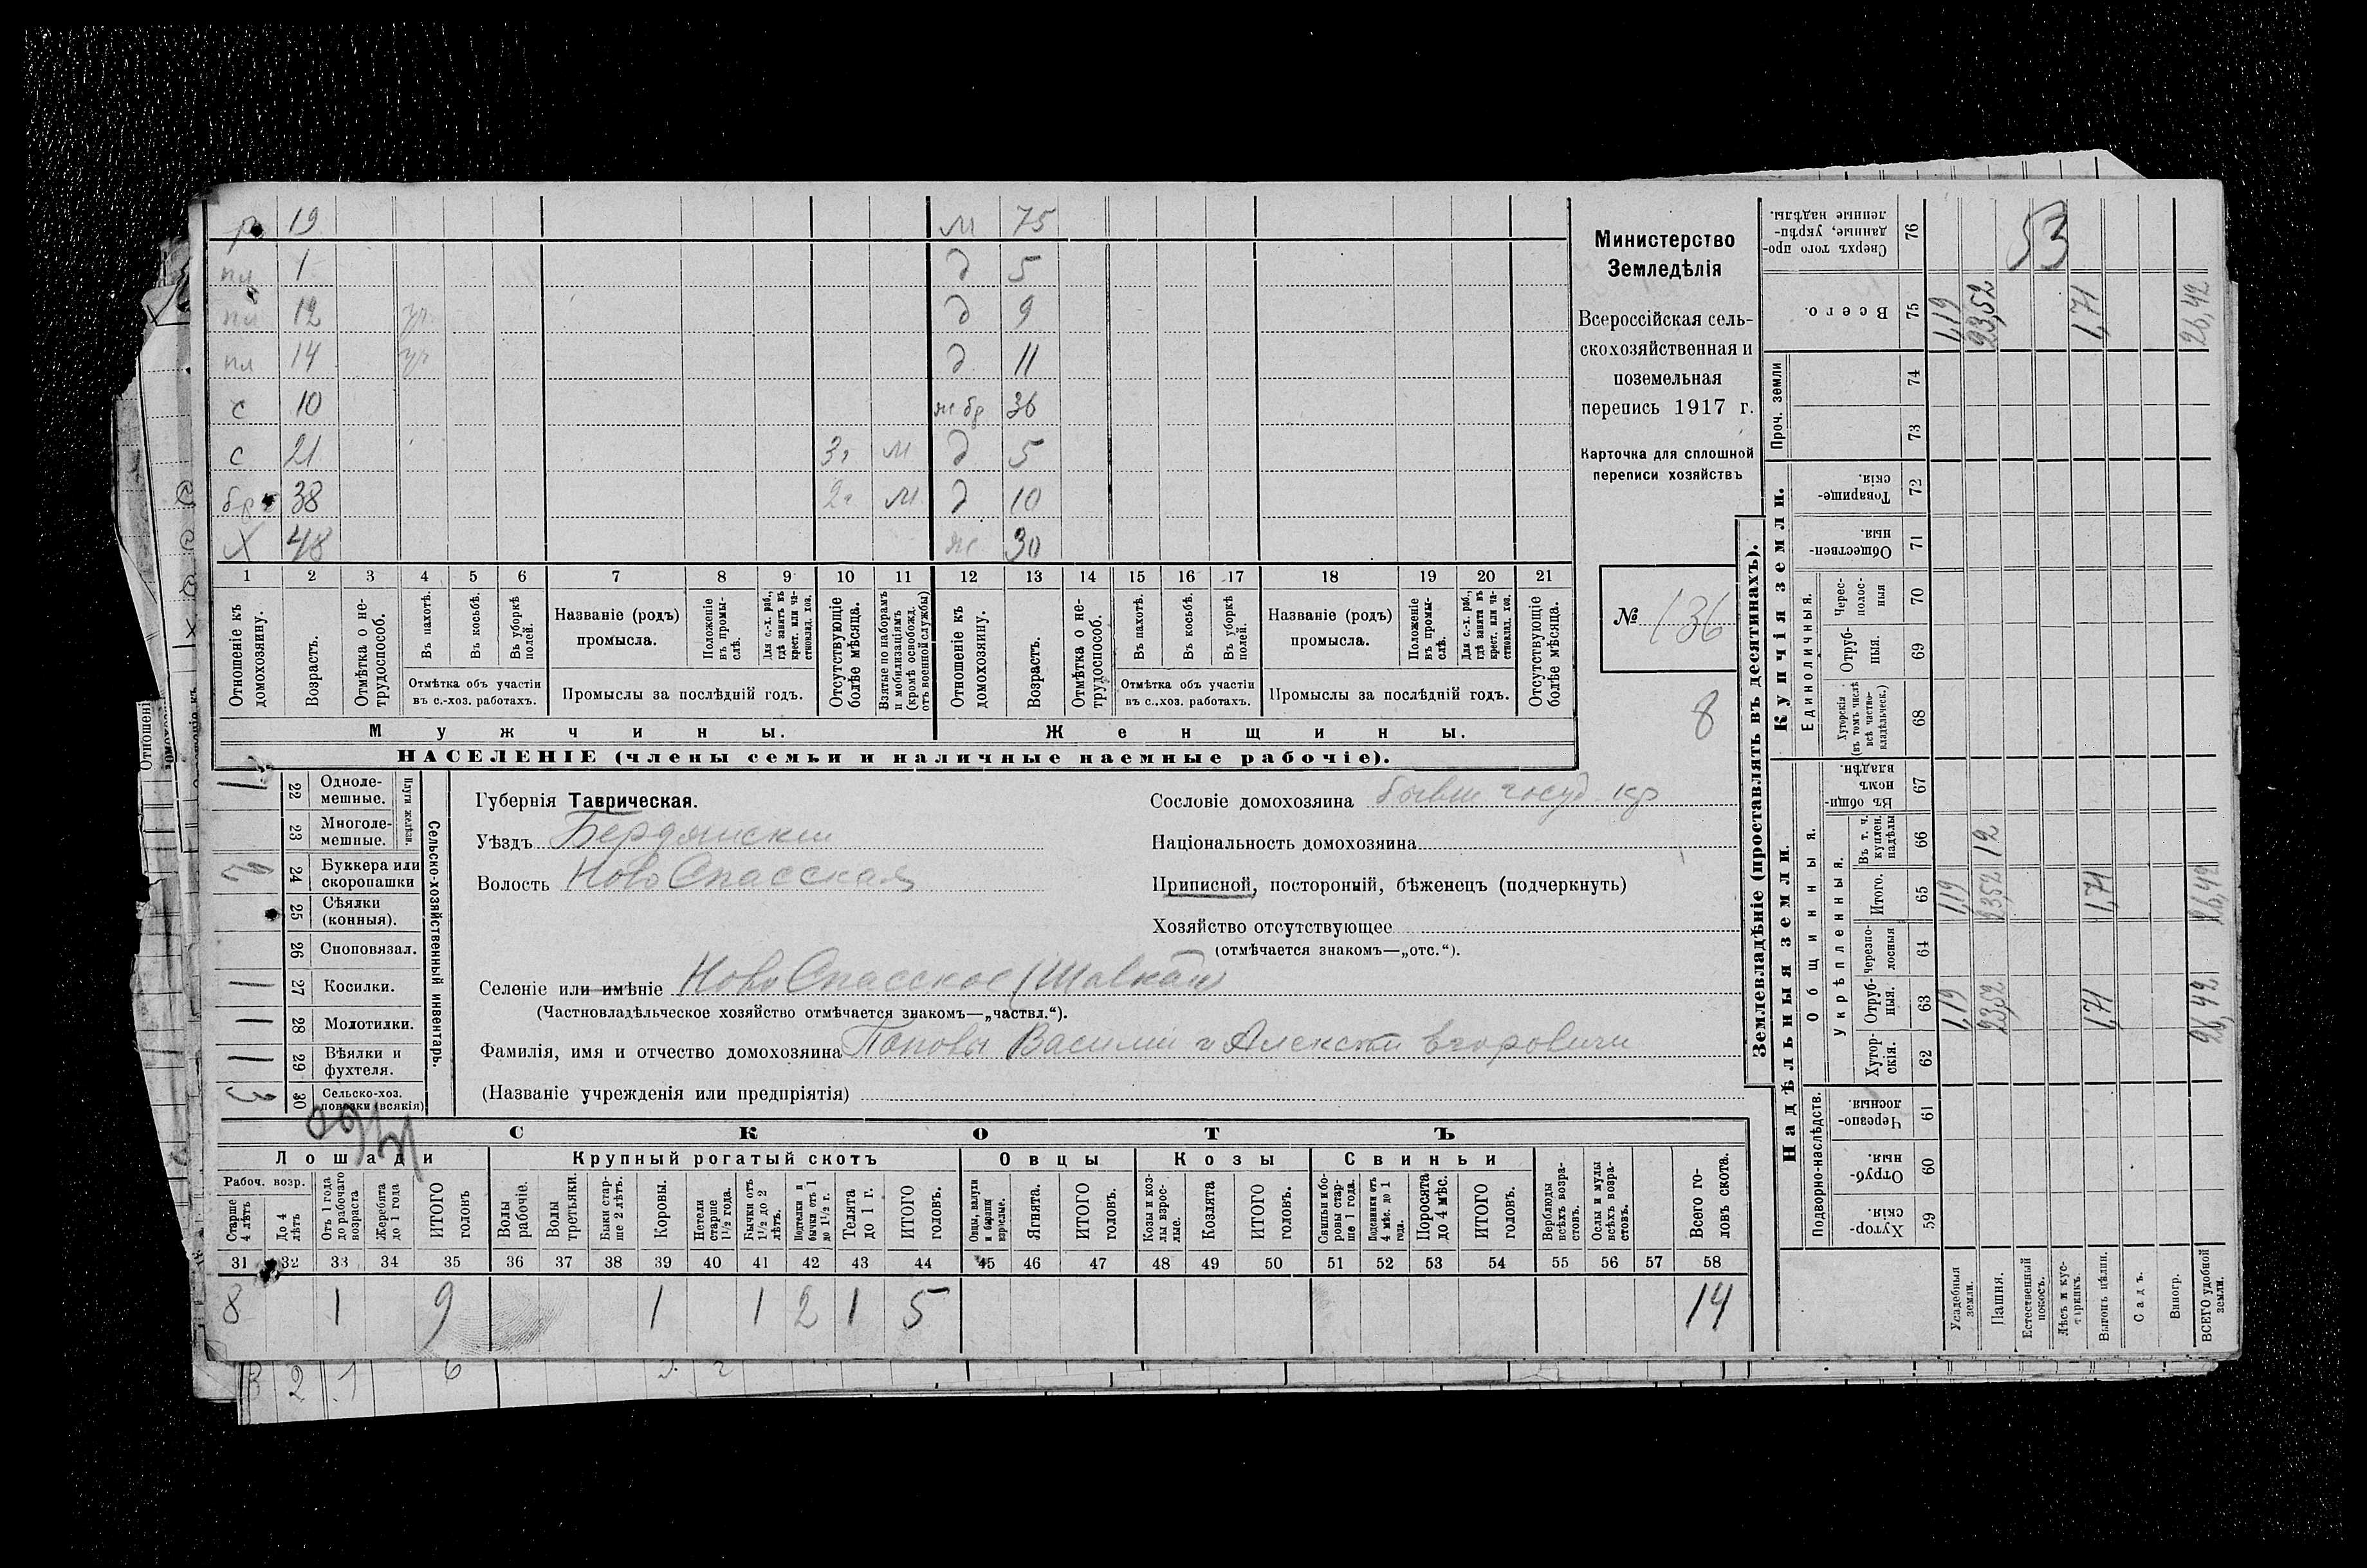 19 м 75
пл 1 д 5
пл 12 уч. д 9
пл 14 уч д 11
с 10 ж бр 36
с 21 3 г м д 5
бр 38 2 г м д 10
Х 48 ж 30
1 2 3 4 5 6 7 8 9 10 11 12 13 14 15 16 17 18 19 20 21
Отношеніе къ домохозяину.
Возрастъ.
Отмѣтка о нетрудоспособ.
Въ пахотѣ.
Въ косьбѣ.
Въ уборкѣ полей.
Отмѣтка объ участіи
въ с.-хоз. работахъ.
Названіе (родъ)
промысла.
Положеніе въ промыслѣ.
Для с.-х. раб., гдѣ занятъ въ крест. или частновлад. хоз.
Промыслы за послѣдній годъ.
Отсутствующіе болѣе мѣсяца.
Взятые по наборамъ и мобилизаціямъ (кромѣ освобожд. отъ военной службы)
Отношеніе къ домохозяину.
Возрастъ.
Отмѣтка о нетрудоспособ.
Въ пахотѣ.
Въ косьбѣ.
Въ уборкѣ полей.
Отмѣтка объ участіи
въ с..хоз. работахъ.
Названіе (родъ)
промысла.
Положеніе въ промыслѣ.
Для с.-х. раб., гдѣ занятъ въ крест. или частновлад. хоз.
Промыслы за послѣдній годъ.
Отсутствующіе болѣе мѣсяца.
Мужчины. Женщины.
НАСЕЛЕНІЕ (члены семьи и наличные наемные рабочіе).
Министерство
Земледѣлія
Всероссійская сель-
скохозяйственная и
поземельная
перепись 1917 г.
Карточка для сплошной
переписи хозяйствъ
№ 136
8
Сельско-хозяйственный инвентарь.
Плуги желѣзн.
22 Одноле-
мешные.
23 Многоле-
мешные.
24 Буккера или
скоропашки
25 Сѣялки
(конныя).
26 Сноповязал.
27 Косилки. 1
28 Молотилки. 1
29 Вѣялки и
фухтеля. 1
30 Сельско-хоз.
повозки (всякія) 3
Губернія Таврическая.
Уѣздъ Бердянскій
Волость НовоСпасская
Селеніе или имѣніе НовоСпасское (Шавкай)
(Частновладѣльческое хозяйство отмѣчается знакомъ—„частвл.“).
Фамилія, имя и отчество домохозяина Поповы Василий и Алексѣй Егоровичи
(Названіе учрежденія или предпріятія)
Сословіе домохозяина бывш госуд. кр
Національность домохозяина
Приписной, посторонній, бѣженецъ (подчеркнуть)
Хозяйство отсутствующее
(отмѣчается знакомъ—„отс.“).
СКОТЪ
Лошади Крупный рогатый скотъ Овцы Козы Свиньи
Рабоч. возр.
Старше 4 лѣтъ
До 4 лѣтъ
Отъ 1 года до рабочаго возраста
Жеребята до 1 года
ИТОГО головъ
Волы рабочіе.
Волы третьяки.
Быки старше 2 лѣтъ.
Коровы.
Нетели старше 1½ года.
Бычки отъ 1½ до 2 лѣтъ.
Подтелки и бычки отъ 1 до 1½ г.
Телята до 1 г.
ИТОГО головъ.
Овцы, валухи и бараны взрослые.
Ягнята.
ИТОГО головъ.
Козы и козлы взрослые.
Козлята
ИТОГО головъ.
Свиньи и боровы старше 1 года.
Подсвинки отъ 4 мѣс. до 1 года.
Поросята до 4 мѣс.
ИТОГО головъ.
Верблюды всѣхъ возрастовъ.
Ослы и мулы всѣхъ возрастовъ.
Всего головъ скота.
31 32 33 34 35 36 37 38 39 40 41 42 43 44 45 46 47 48 49 50 51 52 53 54 55 56 57 58
8 1 9 1 1 2 1 5 14
Землевладѣніе (проставлять въ десятинахъ).
Надѣльныя земли.
Купчія земли.
Проч. земли
Подворно-наслѣдств.
Общинныя.
Укрѣпленныя.
Единоличныя.
Хуторскія. 59
Отрубныя. 60
Черезполосныя. 61
Хуторскія. 62
Отрубныя. 63
Черезполосныя 64
Итого. 65
Въ т. ч. куплен. надѣлы 66
Въ общинномъ владѣн. 67
Хуторскія (въ томъ числѣ всѣ частновладѣльческ.) 68
Отрубныя. 69
Чересполосныя 70
Общественныя. 71
Товарищескія. 72
73
74
Всего. 75
Сверхъ того проданные, укрѣпленные надѣлы. 76
53
Усадебныя земли. 1,19 1,19 1,19
Пашня. 23,52 23,52 12 23,52
Естественный покосъ.
Лѣсъ и кустарникъ.
Выгонъ цѣлин. 1,71 1,71 1,71
Садъ.
Виногр.
ВСЕГО удобной земли. 26,42 26,42 26,42
2 1 6